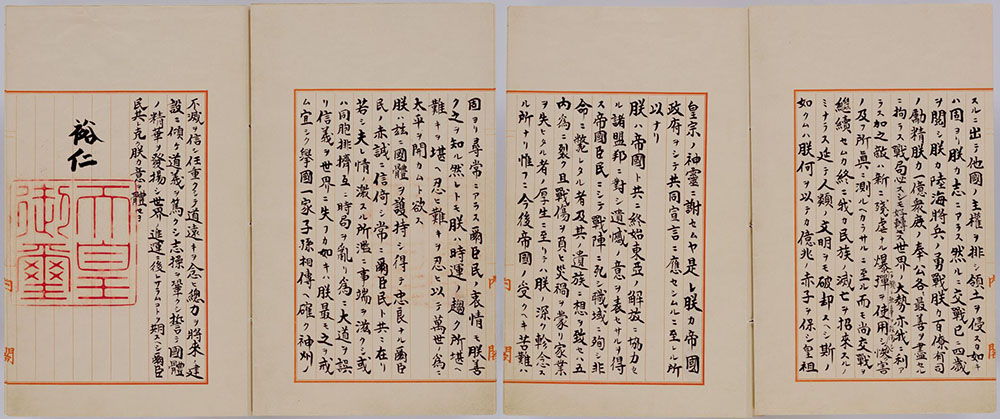 スルニ出テ他國ノ主權ヲ排シ領土ヲ侵スカ如キ
ハ固ヨリ朕カ志ニアラス然ルニ交戰已ニ四歲
ヲ閱シ朕カ陸海將兵ノ勇戰朕カ百僚有司
ノ勵精朕カ一億衆庶ノ奉公各最善ヲ盡セル
ニ拘ラス戰局必スシモ好轉セス世界ノ大勢亦我ニ利ア
ラス加之敵ハ新ニ殘虐ナル爆彈ヲ使用シテ頻ニ無辜ヲ殺傷シ慘害
ノ及フ所眞ニ測ルヘカラサルニ至ル而モ尚交戰ヲ
繼續セムカ終ニ我カ民族ノ滅亡ヲ招來スルノ
ミナラス延テ人類ノ文明ヲモ破却スヘシ斯ノ
如クムハ朕何ヲ以テカ億兆ノ赤子ヲ保シ皇祖
皇宗ノ神靈ニ謝セムヤ是レ朕カ帝國
政府ヲシテ共同宣言ニ應セシムルニ至レル所
以ナリ
朕ハ帝國ト共ニ終始東亞ノ解放ニ協力セ
ル諸盟邦ニ對シ遺憾ノ意ヲ表セサルヲ得
ス帝國臣民ニシテ戰陣ニ死シ職域ニ殉シ非
命ニ斃レタル者及其ノ遺族ニ想ヲ致セハ五
內爲ニ裂ク且戰傷ヲ負ヒ災禍ヲ蒙リ家業
ヲ失ヒタル者ノ厚生ニ至リテハ朕ノ深ク軫念ス
ル所ナリ惟フニ今後帝國ノ受クヘキ苦難ハ
固ヨリ尋常ニアラス爾臣民ノ衷情モ朕善
ク之ヲ知ル然レトモ朕ハ時運ノ趨ク所堪ヘ
難キヲ堪ヘ忍ヒ難キヲ忍ヒ以テ萬世ノ爲ニ
太平ヲ開カムト欲ス
朕ハ茲ニ國體ヲ護持シ得テ忠良ナル爾臣
民ノ赤誠ニ信倚シ常ニ爾臣民ト共ニ在リ
若シ夫レ情ノ激スル所濫ニ事端ヲ滋クシ或
ハ同胞排擠互ニ時局ヲ亂リ爲ニ大道ヲ誤
リ信義ヲ世界ニ失フカ如キハ朕最モ之ヲ戒
ム宜シク擧國一家子孫相傳ヘ確ク神州ノ
不滅ヲ信シ任重クシテ道遠キヲ念ヒ總力ヲ將來ノ建
設ニ傾ケ道義ヲ篤クシ志操ヲ鞏クシ誓テ國體
ノ精華ヲ發揚シ世界ノ進運ニ後レサラムコトヲ期スヘシ爾臣
民其レ克ク朕カ意ヲ體セヨ
裕仁
天皇
御璽